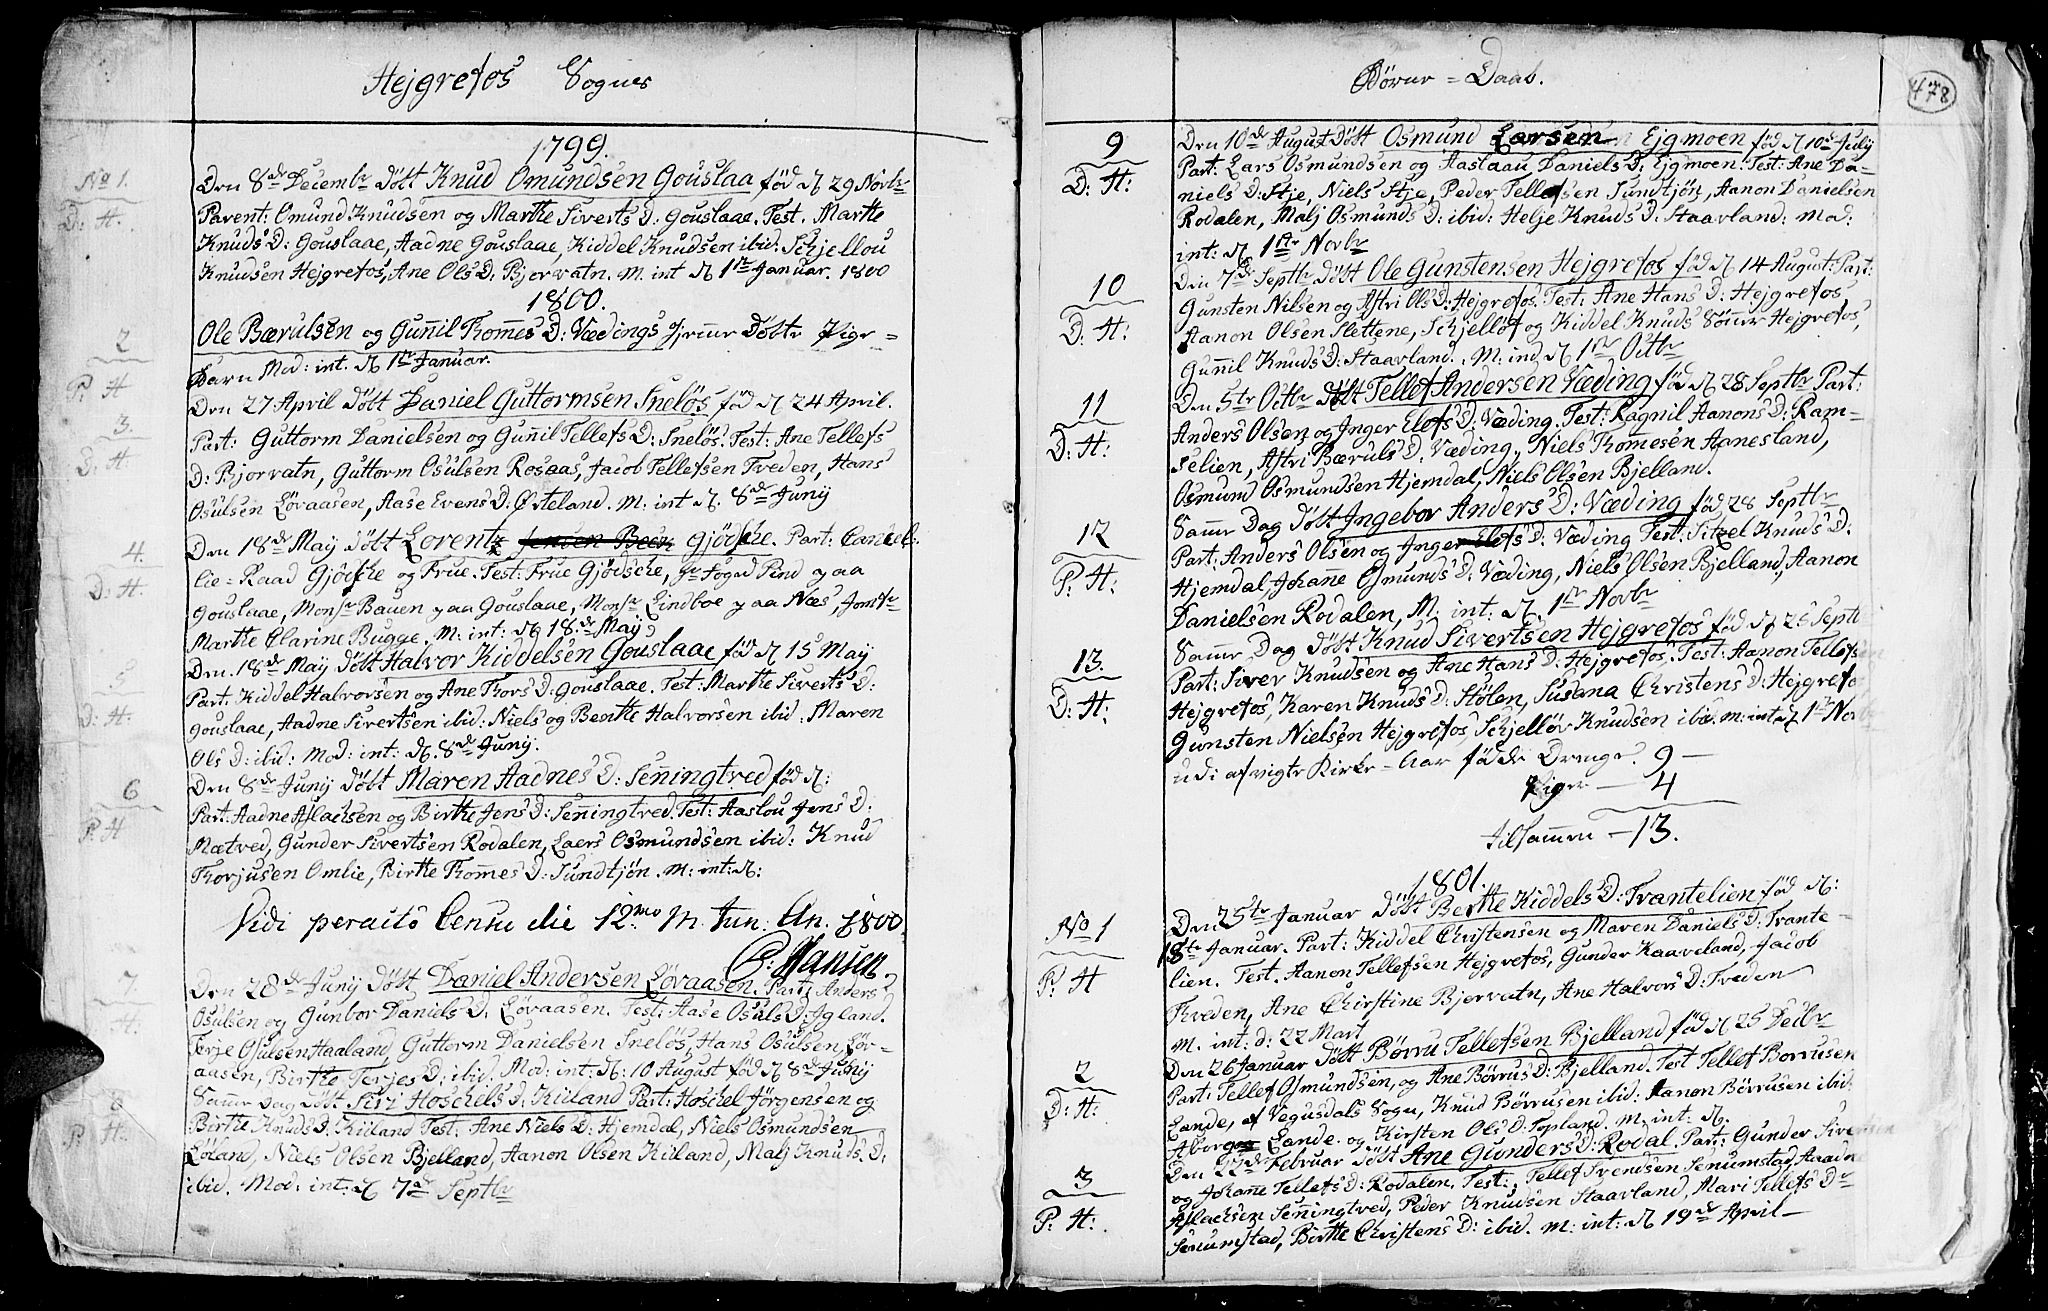 Hejgrefos Sognes
1799.
No 1.
D: H.
Den 8de Decembr døbt Knud Omundsen Gouslaa, fød d. 29 Novbr
Parent: Omund Knudsen og Marthe Siverts D: Gouslaae. Test. Marthe
Knuds D: Gouslaae, Aadne Gouslaae, Kiddel Knudsen ibid: Schjellou
Knudsen Hejgrefos, Ane Ols D: Bjorvatn. M. int d. 1ste Januar. 1800
1800.
2
P: H
Ole Bærulsen og Guñil Thom̃es D: Vædings hjemme Døbte Pige-
Barn Mod: int. d. 1ste Januar.
3.
D: H
Den 27 April døbt Daniel Guttormsen Sneløs fød d. 24 April.
Part: Guttorm Danielsen og Guñil Tellefs D: Sneløs. Test: Ane Tellefs
D: Bjorvatn, Guttorm Osulsen Rosaas, Jacob Tellefsen Treden, Hans
Osulsen Løvaasen, Aase Evens D: Østeland. M: int d. 8de Junÿ
4.
D: H.
Den 18de Maÿ døbt Lorentz Jensen Beck Gjødsche. Part: Cancel:
lie=Raad Gjødsche og Frue. Test: Frue Gjødsche, Hr Foged Pind paa
Gouslaae, Monsr Bauen paa Gouslaae, Monsr Lindboe paa Næs, Jomfr
Marthe Clarine Bugge. M: int: d. 18de Maÿ
5
D: H.
Den 18de Maÿ døbt Halvor Kiddelsen Gouslaae fød d. 15 Maÿ
Part: Kiddel Halvorsen og Ane Thors D: Gouslaae. Test: Marthe Siverts D:
Gouslaae, Aadne Sivertsen ibid: Niels og Benthe Halvorsen ibid: Maren
Ols D: ibid: Mod: int: d. 8de Junÿ.
6
P: H
Den 8de Junÿ døbt Maren Aadnes D: Seningtved fød d:
Part: Aadne Aslachsen og Birthe Jens D: Señingtved. Test: Aaslou Jens D:
Mætved, Gunder Sivertsen Rodalen, Laers Osmundsen ibid: Knud
Thorjusen Omlie, Birthe Thom̃es D: Sundtjøn. M: int: d:
Vidi peracto Censu die 12mo M. Jun: An. 1800
P: Hansen
7.
H.
Den 28de Junÿ døbt Daniel Andersen Løvaasen. Part: Anders
Osulsen og Gunbor Daniels D: Løvaasen. Test: Aase Osuls D: Igland.
Terje Osulsen Haaland, Guttorm Danielsen Sneløs, Hans Osulsen Løv-
aasen, Birthe Terjes D: ibid. Mod: int: d: 10 August fød d. 8de Junÿ
8
P: H:
Samme Dag døbt Siri Hoschels D: Kiiland Part: Hoschel Jørgensen og
Birthe Knuds D: Kiiland Test: Ane Niels D: Hjemdal, Niels Osmundsen
Løland, Niels Olsen Bjelland, Aanon Olsen Kiiland, Malj Knuds D:
ibid. Mod: int: d. 7de Septbr
Børne=Daab.
478
9
D: H:
Den 10de August døbt Osmund Larsen Ejgmoen fød d. 10de Julÿ
Part: Lars Osmundsen og Aaslaau Daniels D: Ejgmoen. Test: Ane Da-
niels D: Stje, Niels Stje, Peder Tellefsen Sundtjøn, Aanon Danielsen
Rodalen, Malj Osmunds D: ibid: Helje Knuds D: Staavland: Mod:
int: d. 1ste Novbr
10
D: H:
Den 7de Septbr døbt Ole Gunstensen Hejgrefos fød d. 14 August: Part:
Gunsten Nilsen og Astri Ols D: Hejgrefos. Test: Ane Hans D: Hejgrefos,
Aanon Olsen Slettene, Schjelløf og Kiddel Knuds Sønner Hejgrefos,
Guñil Knuds D: Staavland. M: ind d. 1ste Octbr
11
D: H:
Den 5te Octbr døbt Tellef Andersen Væding fød d. 28 Septbr Part:
Anders Olsen og Inger Elefs D: Væding. Test: Ragnil Aanons D: Ram-
selien, Astri Bæruls D: Væding, Niels Thom̃esen Aanesland,
Osmund Osmundsen Hjemdal, Niels Olsen Bjelland.
12
P: H:
Samme Dag døbt Ingebor Anders D: Væding fød 28 Septbr
Part: Anders Olsen og Inger Elefs D: Væding Test: Sitzel Knuds D:
Hjemdal, Johañe Osmunds D: Væding, Niels Olsen Bjelland, Aanon
Danielsen Rodalen, M: int: d. 1ste Novbr
13.
D: H:
Samme Dag døbt Knud Sivertsen Hejgrefos fød d. 25 Septb
Part: Siver Knudsen og Ane Hans D: Hejgrefos. Test: Aanon Tellefsen
Hejgrefos, Karen Knuds D: Stølen, Susana Christens D: Hejgrefos
Gunsten Nielsen Hejgrefos, Schjelløv Knudsen ibd. M: int d. 1ste Novb
udi afvigte Kirke=Aar fødde Drenge. 9 —
Piger — 4
tilsam̃en — 13.
1801.
No 1
P: H
Den 25te Januar døbt Berthe Kiddels D: Trantelien fød d:
18de Januar. Part: Kiddel Christensen og Maren Daniels D: Trante-
lien. Test. Aanon Tellefsen Hejgrefos, Gunder Kaaveland, Jacob
Treden, Ane Chirstine Bjorvatn, Ane Halvors D: Treden
M. int: d: 22 Mart
2
D: H:
Den 26 Januar døbt Børru Tellefsen Bjelland fød d. 25 Decbr
Part: Tellef Osmundsen, og Ane Børrus D: Bjelland. Test Tellef Borrusen
Lande, af Vegusdals Sogn, Knud Børrusen ibid: Aanon Børrusen ibid:
Aborg Lande. og Kirsten Ols D: Topland. M. int: d.
3
P: H:
Den 22de Februar døbt Ane Gunders D: Rodal. Part: Gunder Sivertsen
og Johañe Tellefs D: Rodalen. Test: Tellef Svendsen Senumstad, Aadne
Aslachsen Señingtved, Peder Knudsen Staavland, Mari Tellefs D:
Senumstad, Birthe Christens D: ibid. M: int: d. 19de April